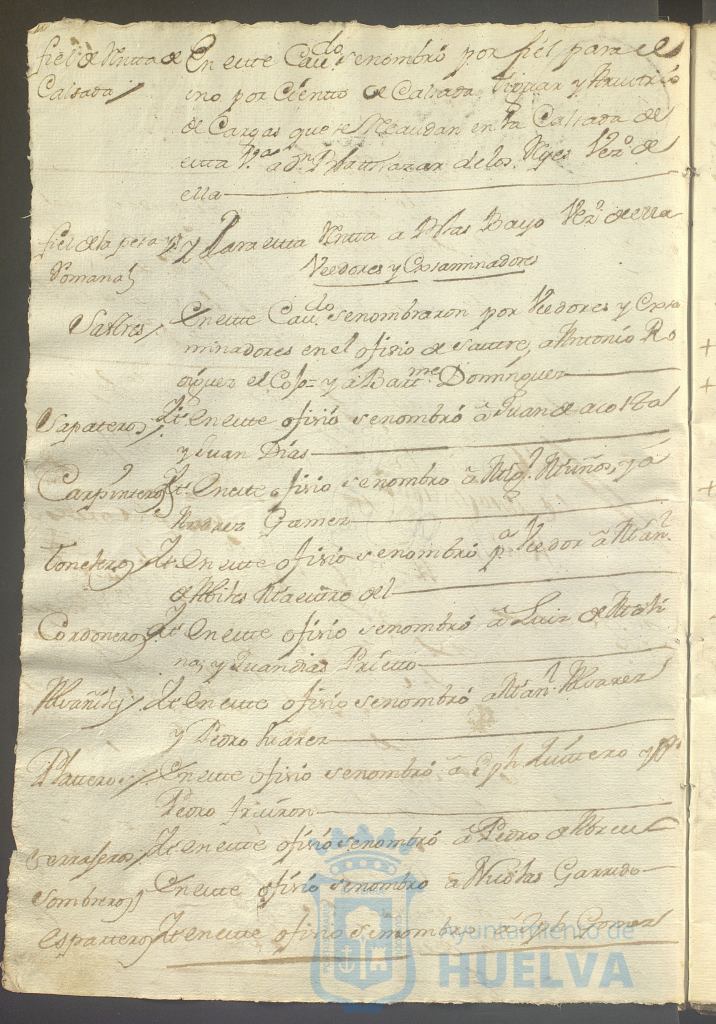 fiel de Rentta de En este Cavdo. se nombró por fiel para el
Calsada / uno por Ciento de Calsada y
de Cargas que se Recaudan en la Calsada de
esta Va. a Dn. Balthazar de los Reyes Vezo. de
ella
fiel de la pesa y Y Para esta Rentta a Blas Bayo Vezo. de ella
Romana
Veedores y Exsaminadores
Sastres / En este Cavdo. se nombraron por Veedores y Exsa
minadores en el ofisio de sastre, a Antonio Ro
driguez el Copz y a Bartme. Dominguez
Sapateros / Yt. en este ofisio se nombró a Juan de acosta
y Juan Dias
Carpinteros Yt. en este ofisio se nombró a Nuños, y a
Andrez Gamez
Toneleros Yt. En este ofisio se nombró pa. Veedor a Man.
de Abiles Maestro del
Cordoneros Yt. en este ofisio se nombró a Luis de Moli
na, y Juan dias Prietto
Alvañiles / Yt. en este ofisio se nombró a Man. Alvarez
y Pedro Suarez
Platteros / En este ofisio se nombró a Quittero y
Pedro
Serrajeros / Yt. en este ofisio se nombró a Pedro de Abreu
Sombreros En este ofisio se nombró a Nicolas Garrido
Esparteros Yt. en este ofisio se nombró a Jph Gomez
Ayuntamiento de
HUELVA